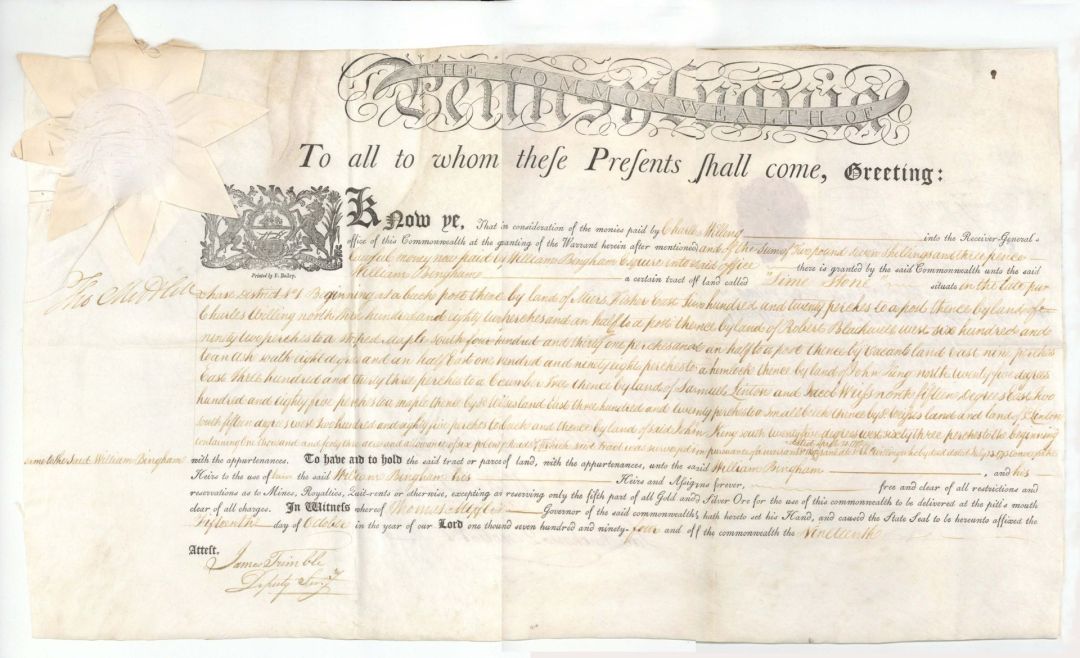 THE COMMONWEALTH OF
Pennsylvania
To all to whom theſe Preſents ſhall come, Greeting:
Know ye, That in conſideration of the monies paid by Charles Willing into the Receiver-General's
office of this Commonwealth at the granting of the Warrant herein after mentioned and of the Sum of pound seven Shillings and three pence
Lawful money now paid by William Bingham Esquire into said office there is granted by the said Commonwealth unto the said
Printed by F. Bailey.
William Bingham a certain tract of land called "Lime Stone" situate in the late pur
Tho Mifflin
chase district No 1 Beginning at a post thence by land of Miers Fisher East Two hundred and twenty perches to a post thence by land of
Charles Willing north hundred and eighty two perches and an half to a post thence by land of Robert west six hundred and
ninety two perches to a striped maple south four hundred and thirty one perches and an half to a post thence by vacant land East nine perches
to an ash south eight degrees and an half East one hundred and ninety eight perches to a hemlock thence by land of John King north twenty five degrees
East three hundred and thirty three perches to a Cucumber Tree thence by land of Samuel Linton and Jacob Weiss north fifteen degrees East two
hundred and eighty five perches to a maple thence by land East three hundred and twenty perches to a small thence by land and land of Linton
south fifteen degrees west Two hundred and eighty five perches to a and thence by land of said John King south twenty five degrees west sixty three perches to the beginning
containing One thousand and forty acres and allowance of six p Cent for roads &c which said tract was surveyed in pursuance of a warrant
same to the said William Bingham
with the appurtenances. To have and to hold the said tract or parcel of land, with the appurtenances, unto the said William Bingham, and his
Heirs to the use of him the said William Bingham his Heirs and Aſsigns forever, free and clear of all restrictions and
reservations as to Mines, Royalties, Quit-rents or otherwise, excepting and reserving only the fifth part of all Gold and Silver Ore for the use of this commonwealth to be delivered at the pit's mouth
clear of all charges. In Witneſs whereof Thomas Mifflin Governor of the said commonwealth, hath hereto set his Hand, and caused the State Seal to be hereunto affixed the
fifteenth day of October in the year of our Lord one thousand seven hundred and ninety-four and of the commonwealth the Nineteenth
Attest.
James Trimble
Deputy Secy